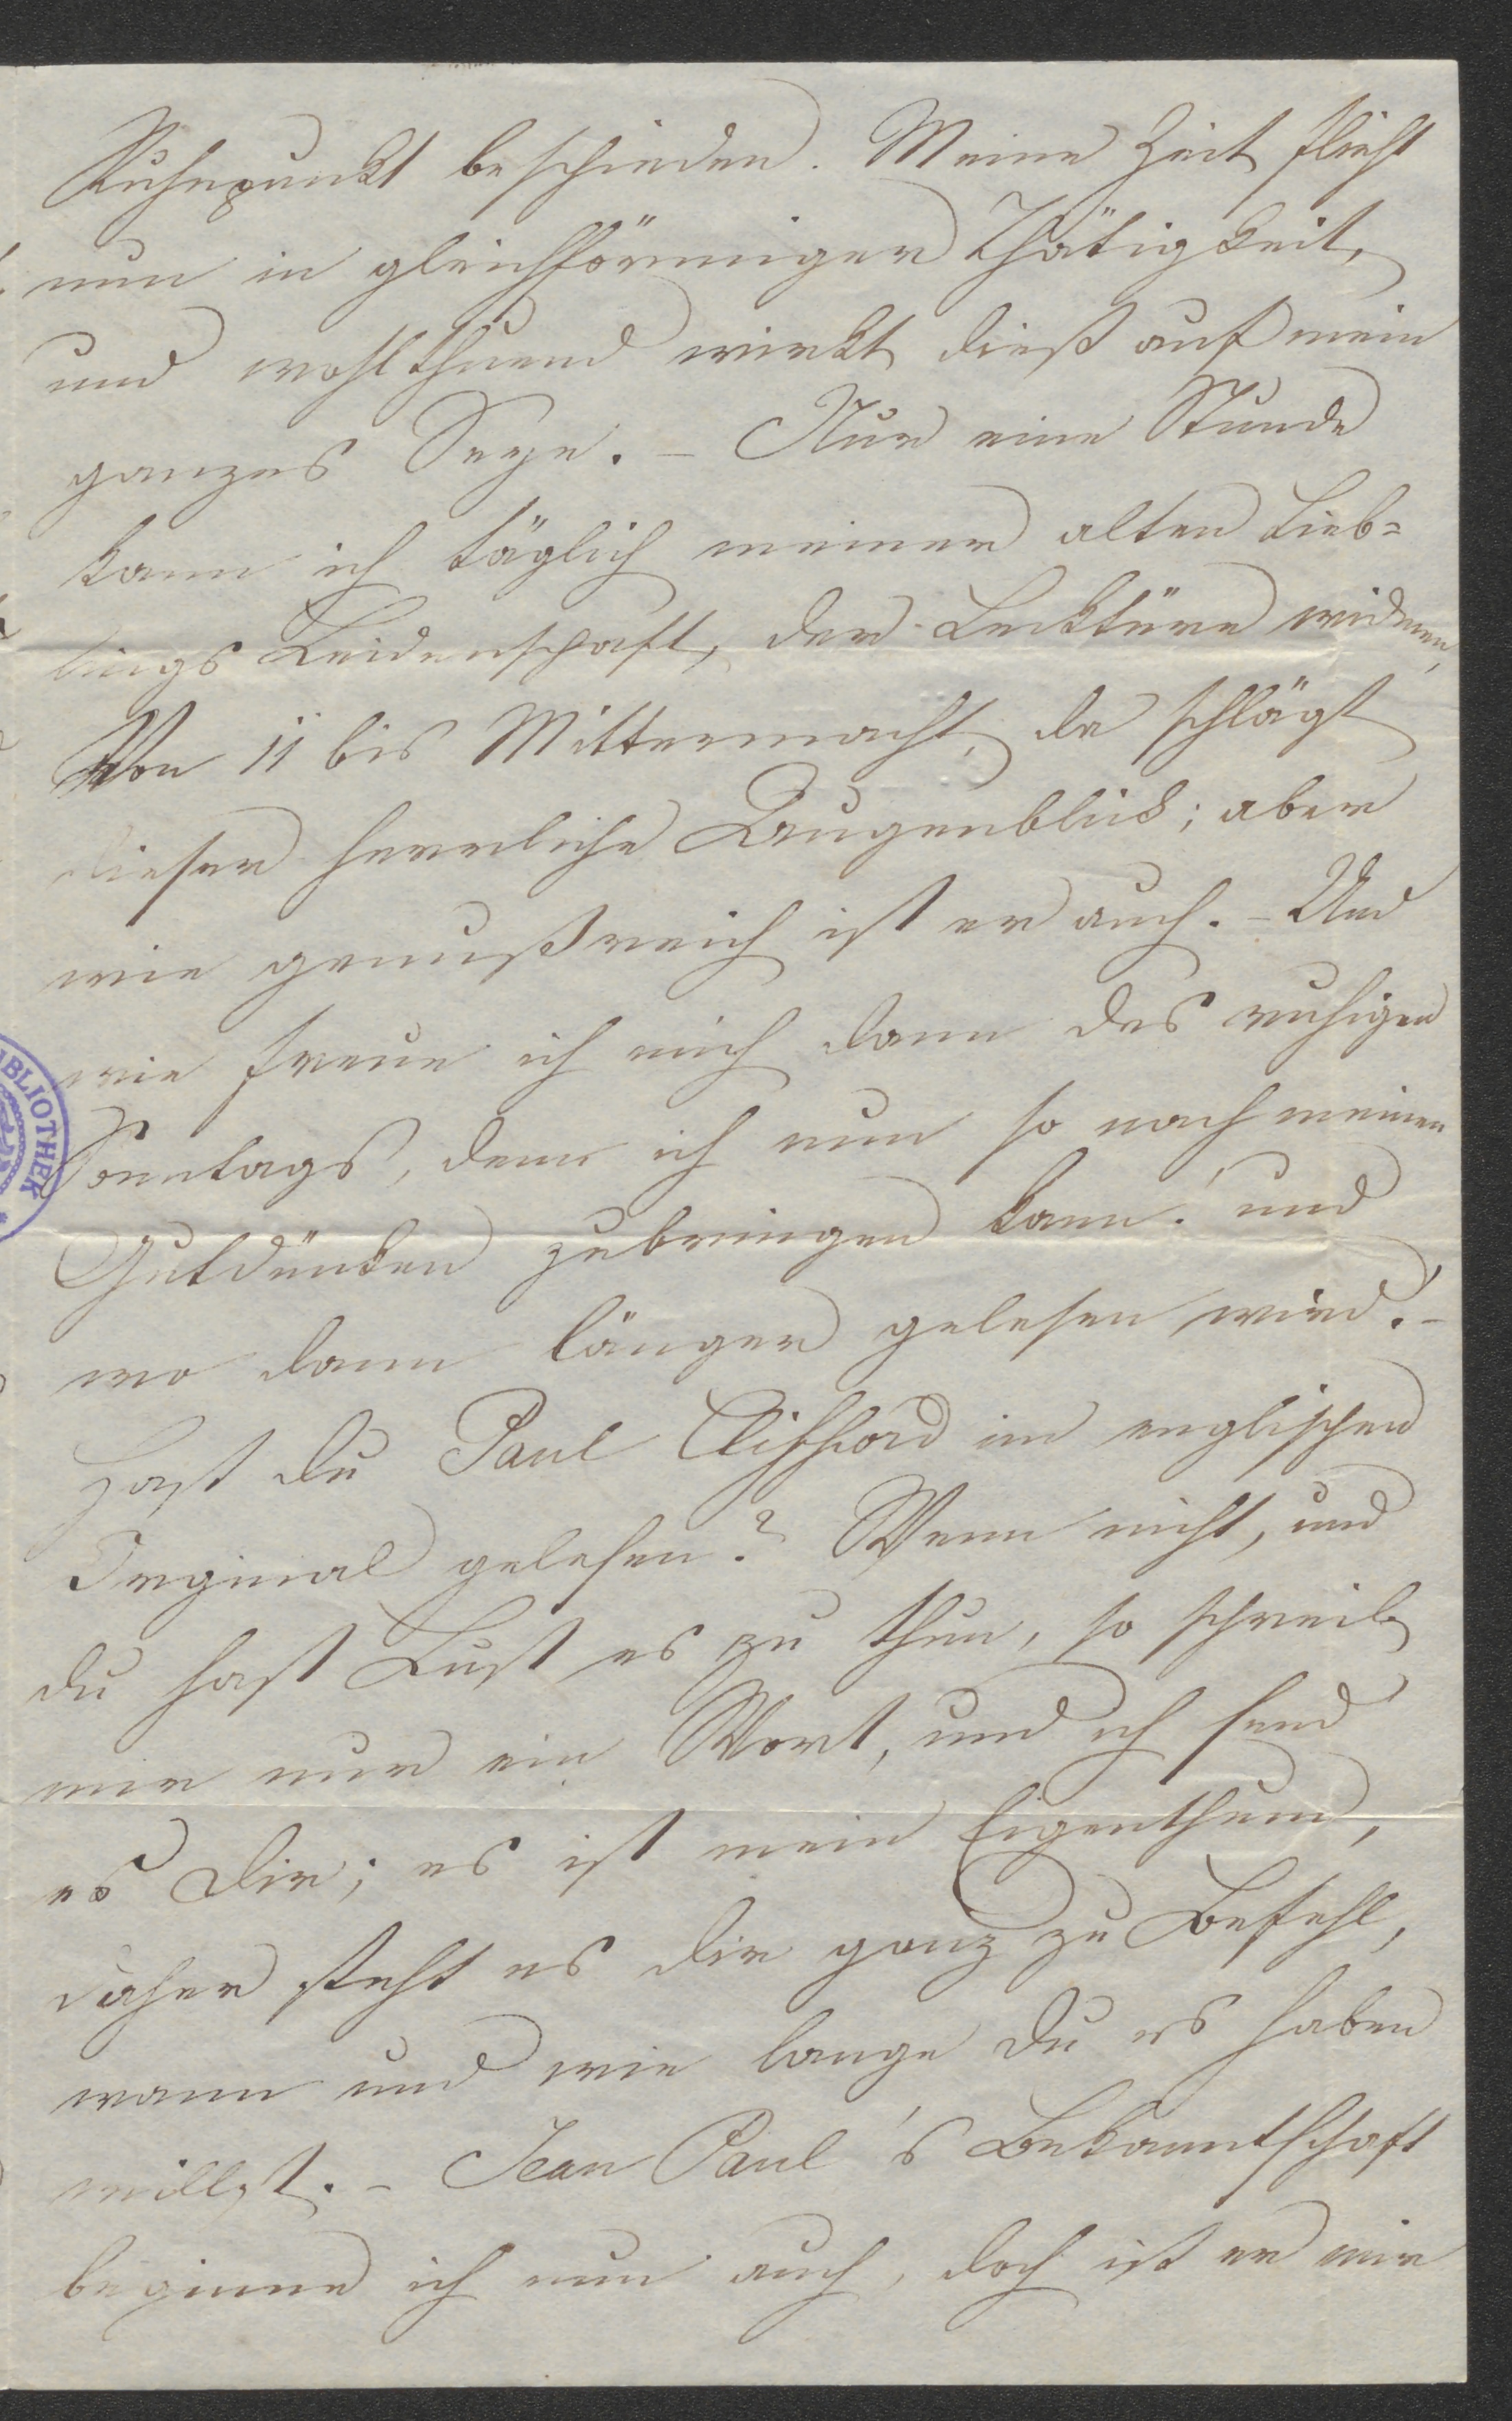 Ruhepunkt beschieden. Meine Zeit flieht
nun in gleichförmiger Thätigkeit,
und wohlthuend wirkt dieß auf mein
ganzes Seyn. – Nur eine Stunde
kann ich täglich meiner alten Lieb=
lings Leidenschaft, der Lecktüre widmen,
Von 11 bis Mitternacht, da schlägt
dieser herrliche Augenblick; aber
wie genußreich ist er auch. – Und
wie freue ich mich dann des ruhigen
Sonntags, denn ich nun so nach meinen
Gutdünken zubringen kann! und
wo dann länger gelesen wird. –
Hast du Paul Clifford im englischen
Orginal gelesen? Wenn nicht, und
du hast Lust es zu thun, so schreib
mir nur ein Wort, und ich send
es Dir; es ist mein Eigenthum,
daher steht es dir ganz zu Befehl,
wann und wie lange du es haben
willst. – Jean Paul's Bekanntschaft
beginne ich nun auch, doch ist er mir
BIBLIOTHEK